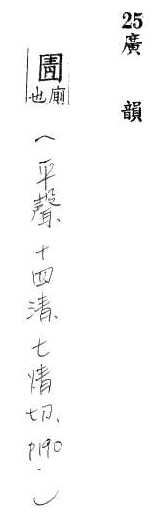 25 廣韻
圊 廁也
(平聲、十四清、七情切、P190.)